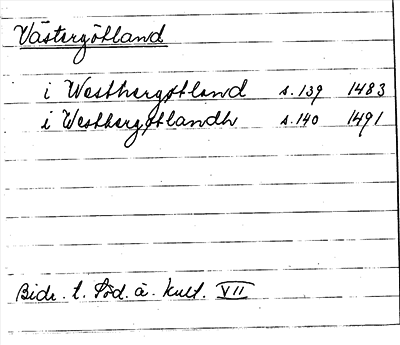 Västergötland
i Westhergøtland s. 139 1483
i Westhergøtlandh s. 140 1491
Bidr. t. Söd. å. kult. VII